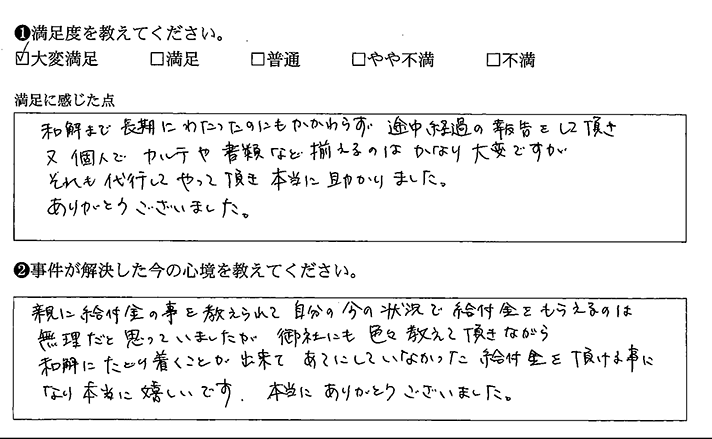 ❶満足度を教えてください。
☑大変満足 □満足 □普通 □やや不満 □不満
満足に感じた点
和解まで長期にわたったのにもかかわらず 途中経過の報告をして頂き
又 個人で カルテや書類など揃えるのは かなり大変ですが
それも代行して やって頂き 本当に助かりました。
ありがとうございました。
❷事件が解決した今の心境を教えてください。
親に給付金の事を教えられて 自分の今の状況で 給付金をもらえるのは
無理だと思っていましたが 御社にも色々教えて頂きながら
和解にたどり着くことが出来て あてにしていなかった 給付金を頂ける事に
なり本当に嬉しいです. 本当にありがとうございました。